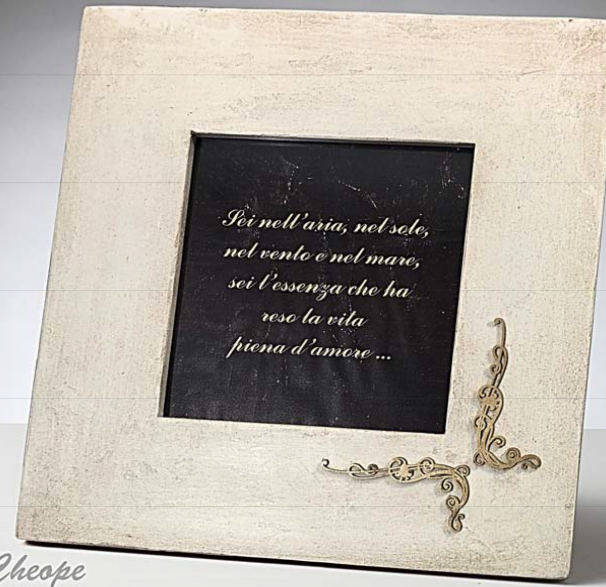 Sei nell'aria, nel sole,
nel vento e nel mare,
sei l'essenza che ha
reso la vita
piena d'amore ...
Cheope